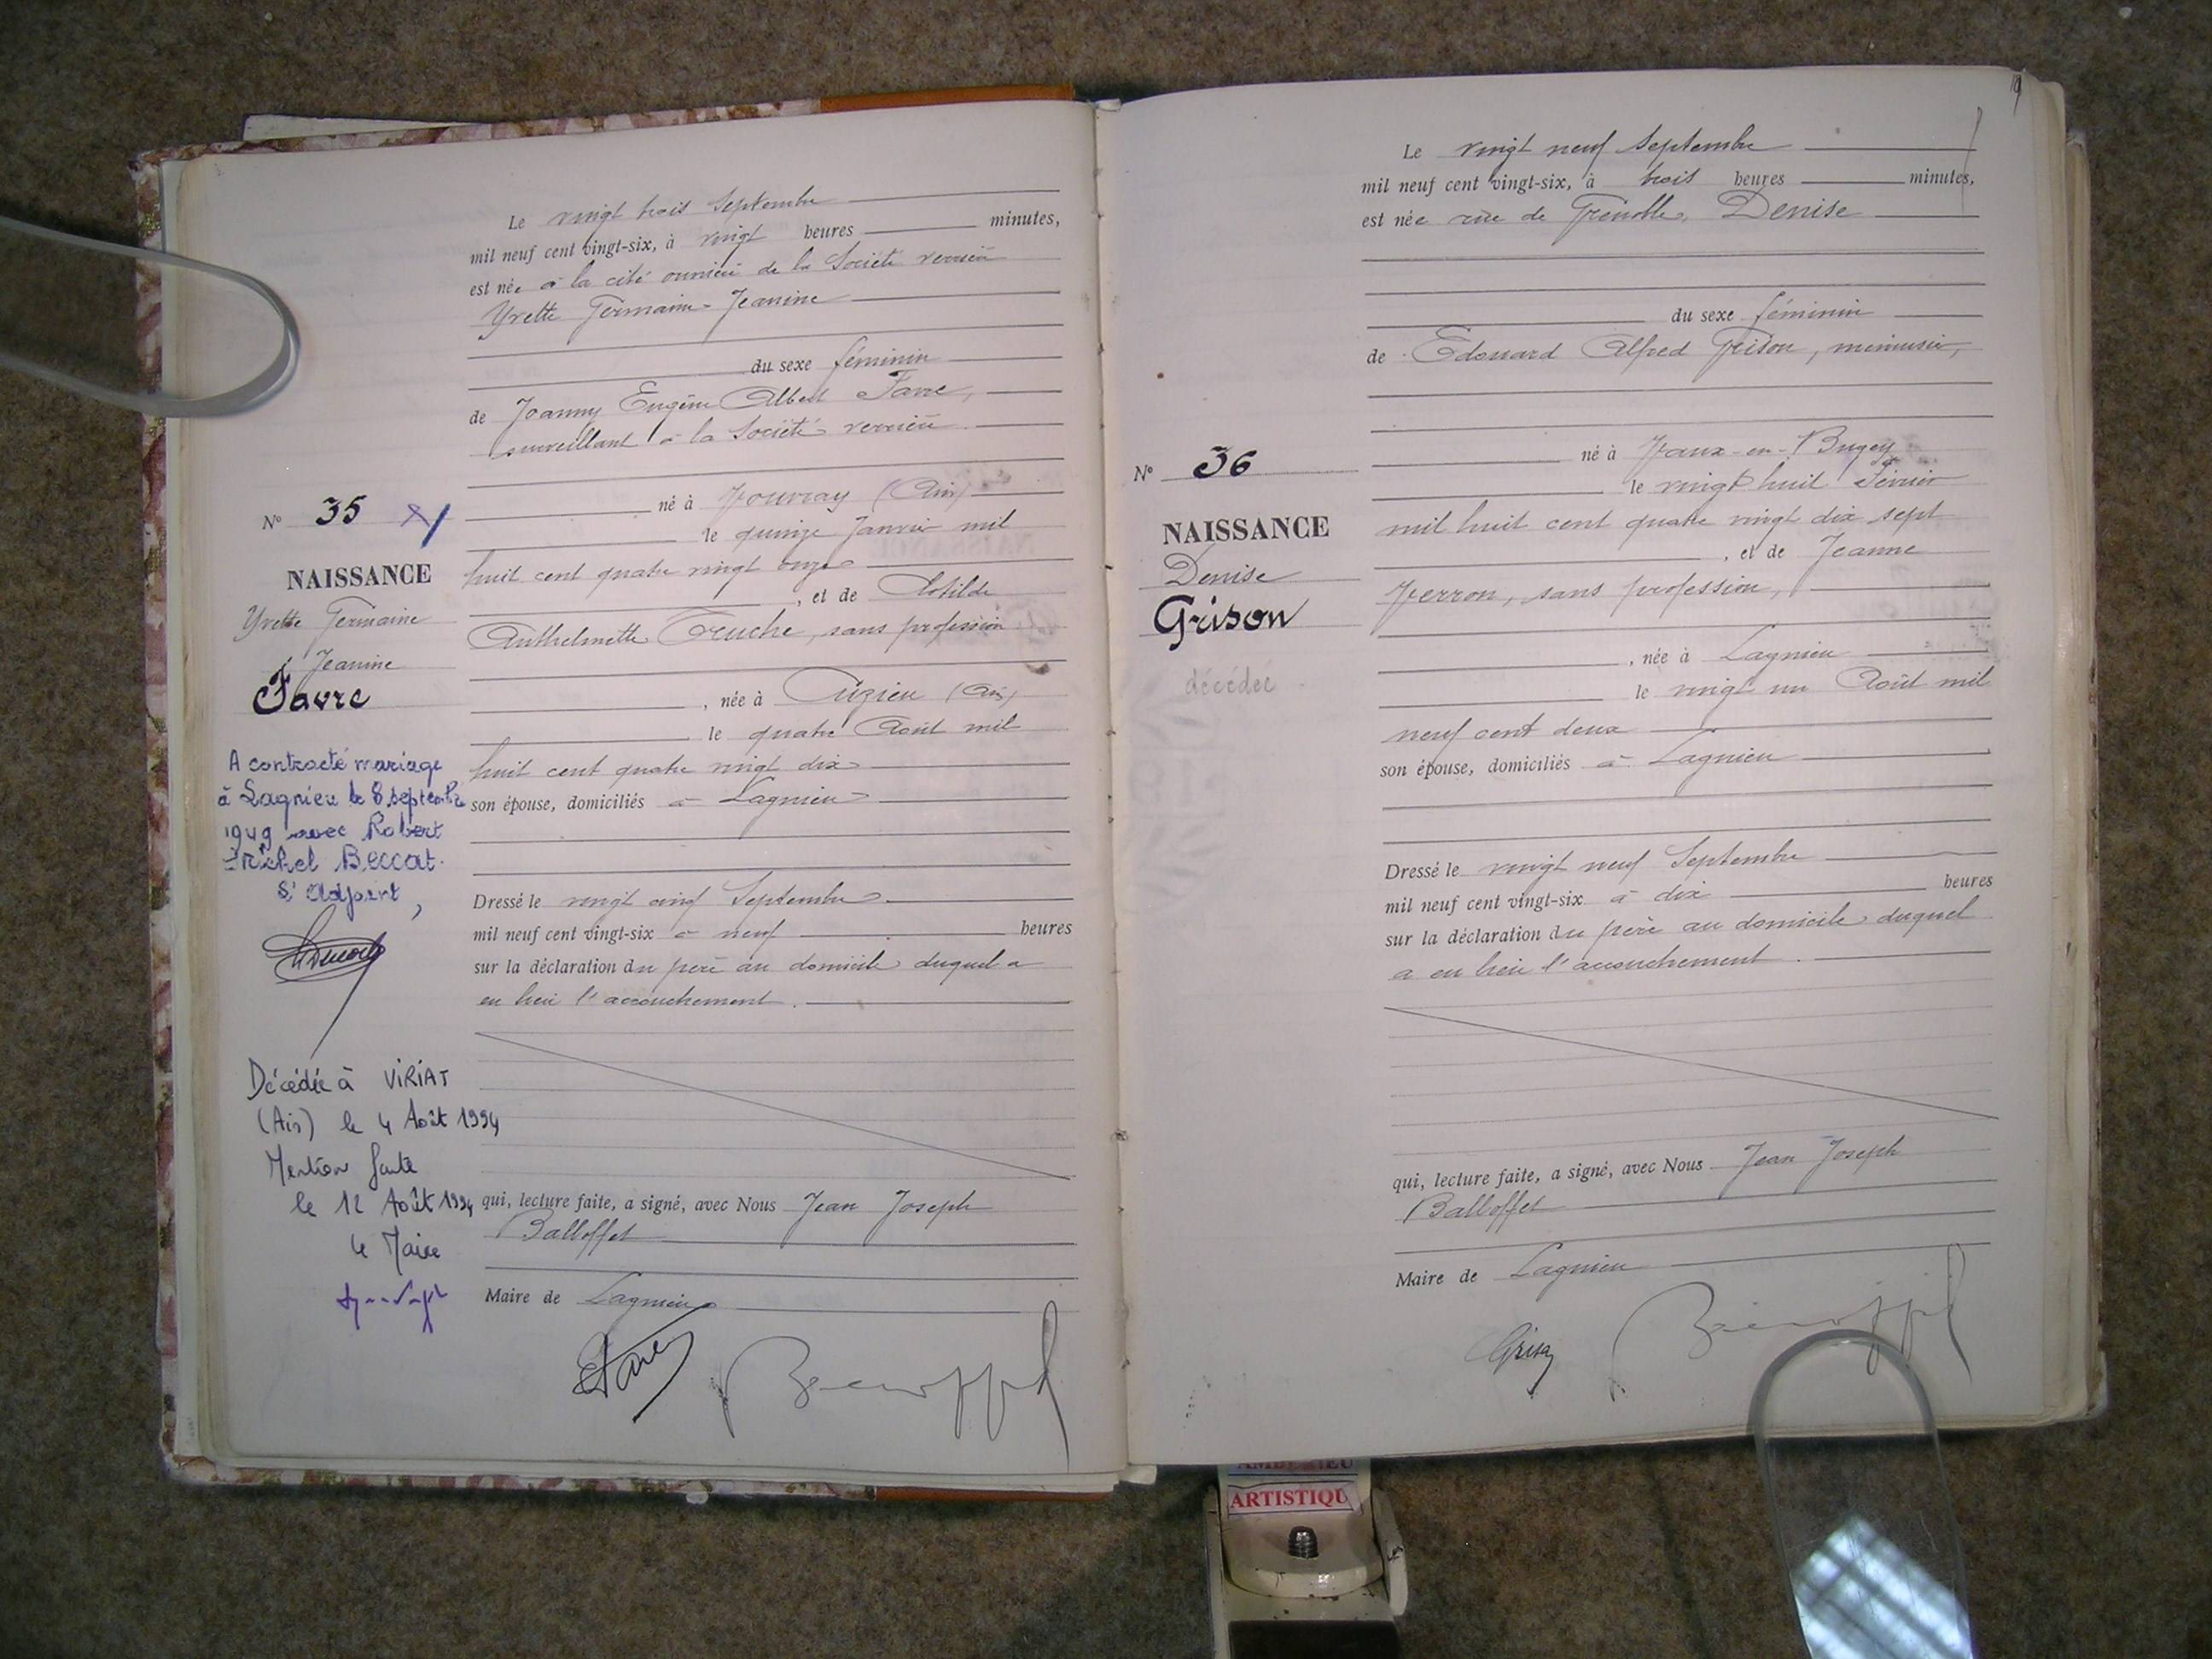 Le vingt trois Septembre
mil neuf cent vingt-six, à vingt heures minutes,
est née à la cité ouvrière de la Société verrière
Yvette Germaine Jeanine
du sexe féminin
de Joanny Eugène Albert Favre,
surveillant à la Société verrière
né à Vouvray (Ain)
le quinze Janvier mil
huit cent quatre vingt onze
, et de Clotilde
Anthelmette Truche, sans profession
, née à Cuzieu (Ain)
le quatre Août mil
huit cent quatre vingt dix
son épouse, domiciliés à Lagnieu
Dressé le vingt cinq Septembre
mil neuf cent vingt-six à neuf heures
sur la déclaration du père au domicile duquel a
eu lieu l'accouchement.
qui, lecture faite, a signé, avec Nous Jean Joseph
Balloffet
Maire de Lagnieu
N° 35
NAISSANCE
Yvette Germaine
Jeanine
Favre
A contracté mariage
à Lagnieu le 8 septembre
1949 avec Robert
Michel Beccat.
Adjoint,
Décédée à VIRIAT
(Ain) le 4 Août 1994
Mention faite
le 12 Août 1994
le Maire
Le vingt neuf Septembre
mil neuf cent vingt-six, à trois heures minutes,
est née rue de Grenoble, Denise
du sexe féminin
de Edouard Alfred Grison, menuisier,
né à Vaux-en-Bugey
le vingt huit Février
mil huit cent quatre vingt dix sept
, et de Jeanne
Perron, sans profession,
, née à Lagnieu
le vingt un Août mil
neuf cent deux
son épouse, domiciliés à Lagnieu
Dressé le vingt neuf Septembre
mil neuf cent vingt-six à dix heures
sur la déclaration du père au domicile duquel
a eu lieu l'accouchement.
qui, lecture faite, a signé, avec Nous Jean Joseph
Balloffet
Maire de Lagnieu
Grison
N° 36
NAISSANCE
Denise
Grison
décédée
ARTISTIQU